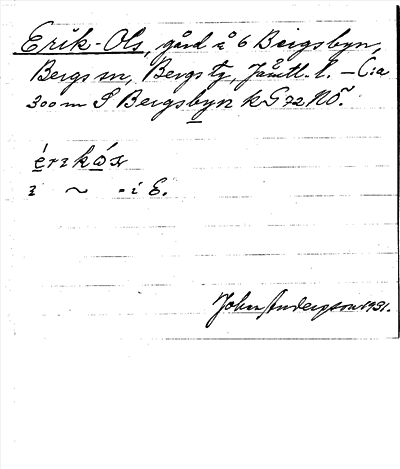 Erik-Ols, gård å 6 Bergsbyn,
Bergs sn, Bergs tg, Jämtl. l. – C:a
300 m S Bergsbyn k G 72 NÖ.
érɩkós
ɩ ~ - i E.
John Anderzon 1931.